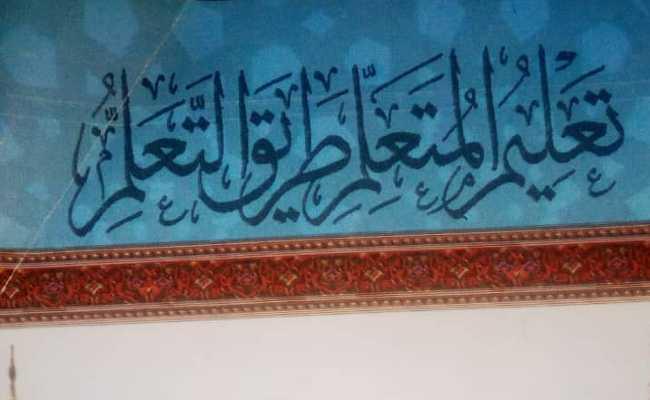 تعليم المتعلم طريق التعلم